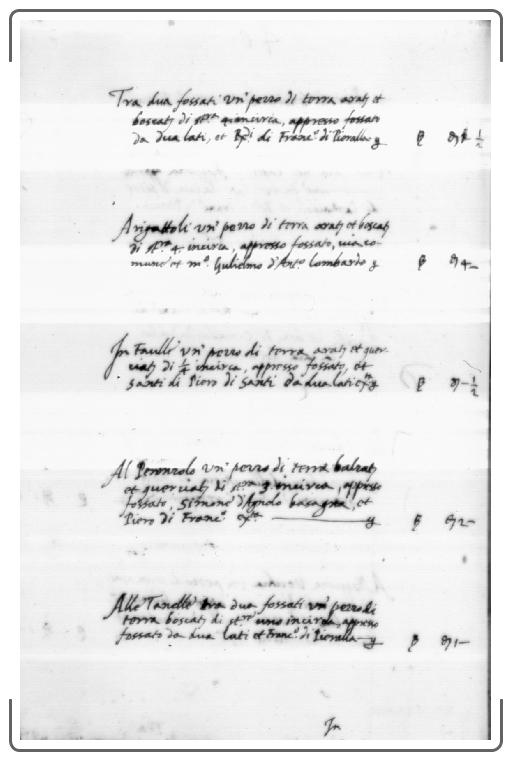 Tra dua fossati un° pezzo di terra arat; et
boscat; di st.ra 4 incirca, appresso fossato
da dua lati, et di Franc.° di Pioralla
Arigattoli un° pezzo di terra arat; et boscat;
di st.ra 4. incirca, appresso fossato, via co-
mune et m.° Gulielmo d'Ant.° lombardo 4_
In Faulle un° pezzo di terra arat; et quer-
ciat; di 1/4 incirca, appresso fossato, et
santi di Piero di santi da dua lati _ 1/2
Al Peronzolo un° pezzo di terra balzat;
et querciat; di st.ra 3 incirca, appresso
fossato, simone d'Agnolo basagna, et
Piero di Franc.° 2_
Alle Tanelle tra dua fossati un° pezzo di
terra boscat; di st.ro uno incirca, appresso
fossato da dua lati et Franc.° di Pioralla 1_
In